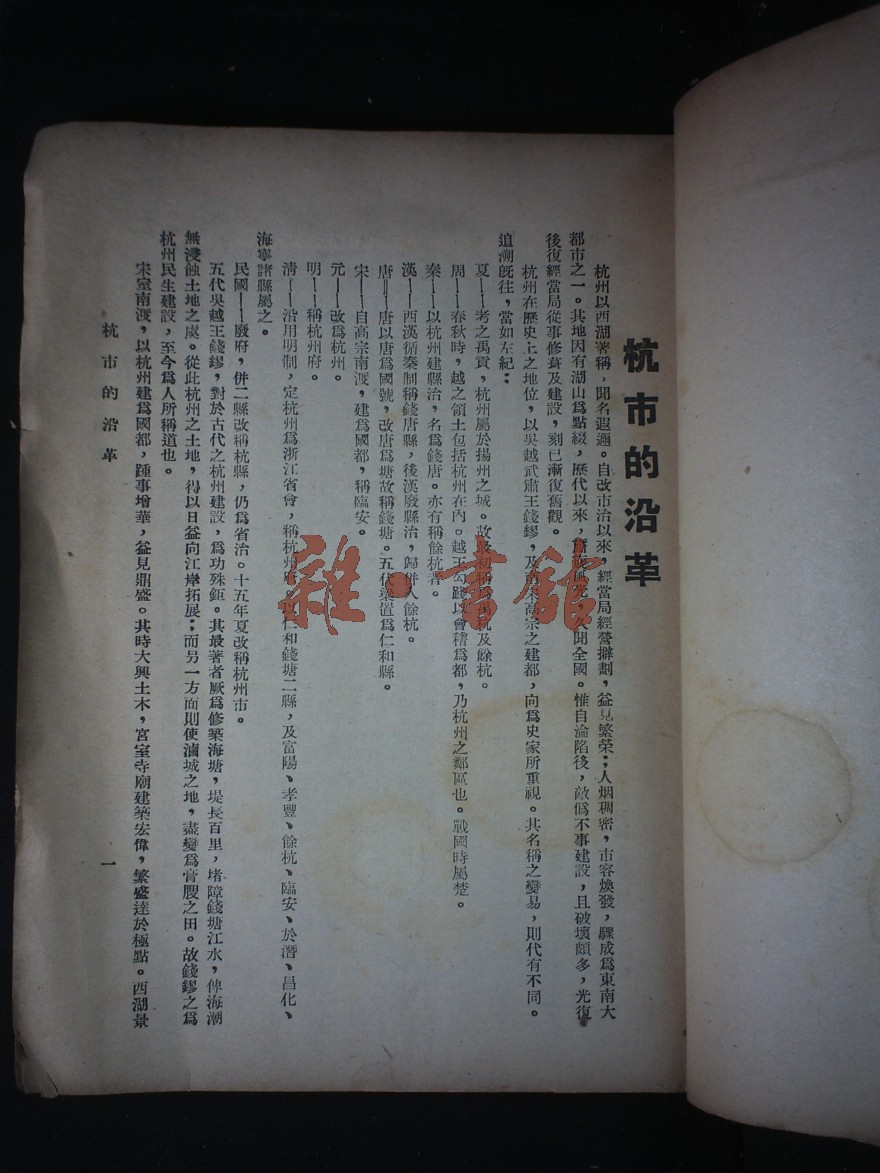 杭市的沿革
杭州以西湖著稱，聞名遐邇。自改市治以來，經當局經營擘劃，益見繁榮；人烟稠密，市容煥發，驟成爲東南大
都市之一。其地因有湖山爲點綴，歷代以來，久聞全國。惟自淪陷後，敵僞不事建設，且破壞頗多，光復
後復經當局從事修葺及建設，刻已漸復舊觀。
杭州在歷史上之地位，以吳越武肅王錢鏐，及南宋高宗之建都，向爲史家所重視。其名稱之變易，則代有不同。
追溯旣往，當如左紀：
夏——考之禹貢，杭州屬於揚州之域。故最初稱爲禹杭及餘杭。
周——春秋時，越之領土包括杭州在內。越王勾踐以會稽爲都，乃杭州之鄰區也。戰國時屬楚。
秦——以杭州建縣治，名爲錢唐。亦有稱餘杭者。
漢——西漢循秦制稱錢唐縣，後漢廢縣治，歸併入餘杭。
唐——唐以唐爲國號，改唐爲塘故稱錢塘。五代梁置爲仁和縣。
宋——自高宗南渡，建爲國都，稱臨安。
元——改爲杭州。
明——稱杭州府。
淸——沿用明制，定杭州爲浙江省會，稱杭州府。以仁和錢塘二縣，及富陽、孝豐、餘杭、臨安、於潛、昌化、
海寧諸縣屬之。
民國——廢府，併二縣改稱杭縣，仍爲省治。十五年夏改稱杭州市。
五代吳越王錢鏐，對於古代之杭州建設，爲功殊鉅。其最著者厥爲修築海塘，堤長百里，堵障錢塘江水，俾海潮
無浸蝕土地之處。從此杭州之土地，得以日益向江岸拓展；而另一方面則使滷城之地，盡變爲膏腴之田。故錢鏐之爲
杭州民生建設，至今爲人所稱道也。
宋室南渡，以杭州建爲國都，踵事增華，益見鼎盛。其時大興土木，宮室寺廟建築宏偉，繁盛達於極點。西湖景
杭市的沿革
一
雜·書館